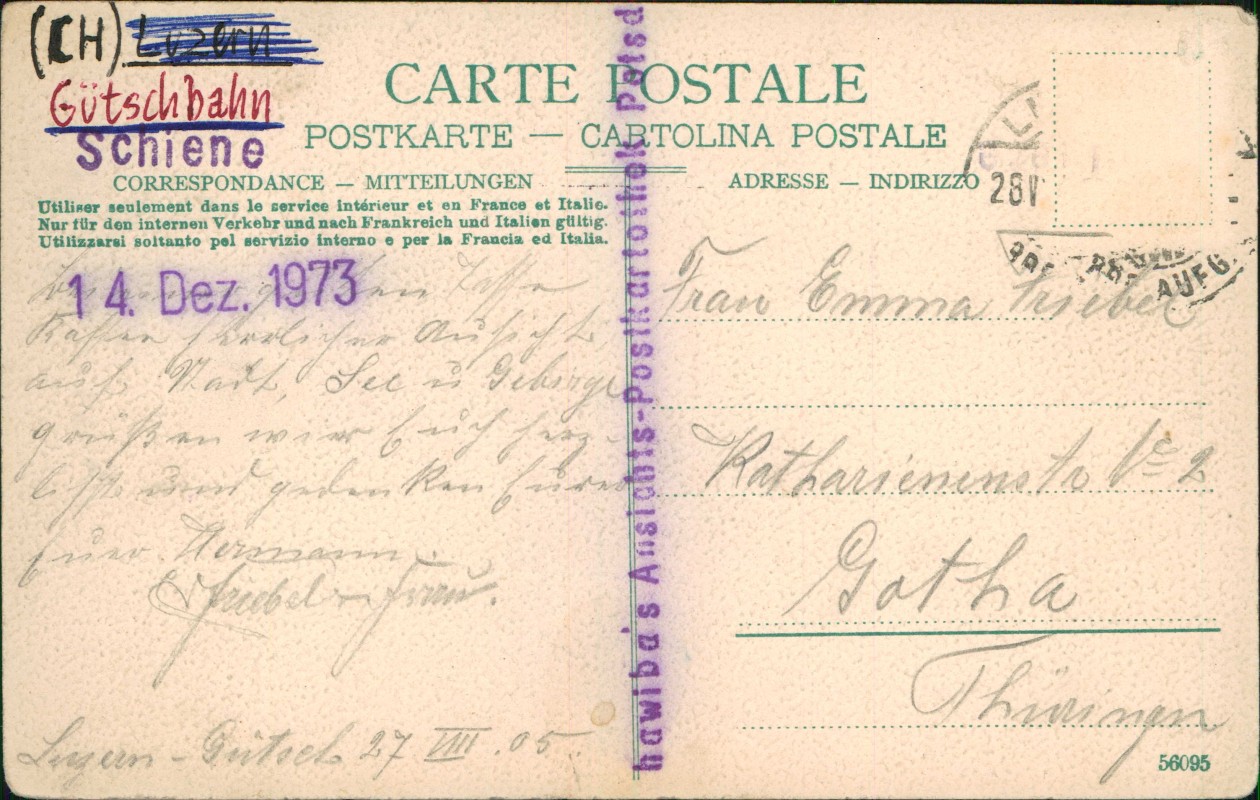 (CH) Luzern
Gütschbahn
Schiene
CARTE POSTALE
POSTKARTE — CARTOLINA POSTALE
CORRESPONDANCE — MITTEILUNGEN
ADRESSE — INDIRIZZO
Utiliser seulement dans le service intérieur et en France et Italie.
Nur für den internen Verkehr und nach Frankreich und Italien gültig.
Utilizzarsi soltanto pel servizio interno e per la Francia ed Italia.
14. Dez. 1973
28 V
AUFG
Kaffee herrlicher Aussicht
auf Stadt, See u Gebirge
grüßen wir Euch herz-
lichst und gedenken Eurer
Euer Hermann
Friebel u Frau.
Luzern - Gütsch 27 VIII. 05.
hawiba's Ansichts-Postkartothek Potsd
Frau Emma Friebel
Katharienenstr No 2
Gotha
Thüringen
56095